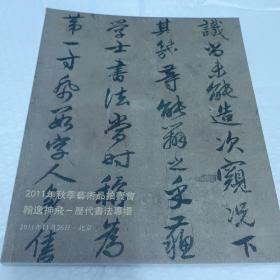 識皆未能造次窺況下
其能辭之
学士書法當时為
第一寸紙数字人售
2011年秋季藝術品拍賣會
翰逸神飛－歷代書法專場
2011年11月26日·北京